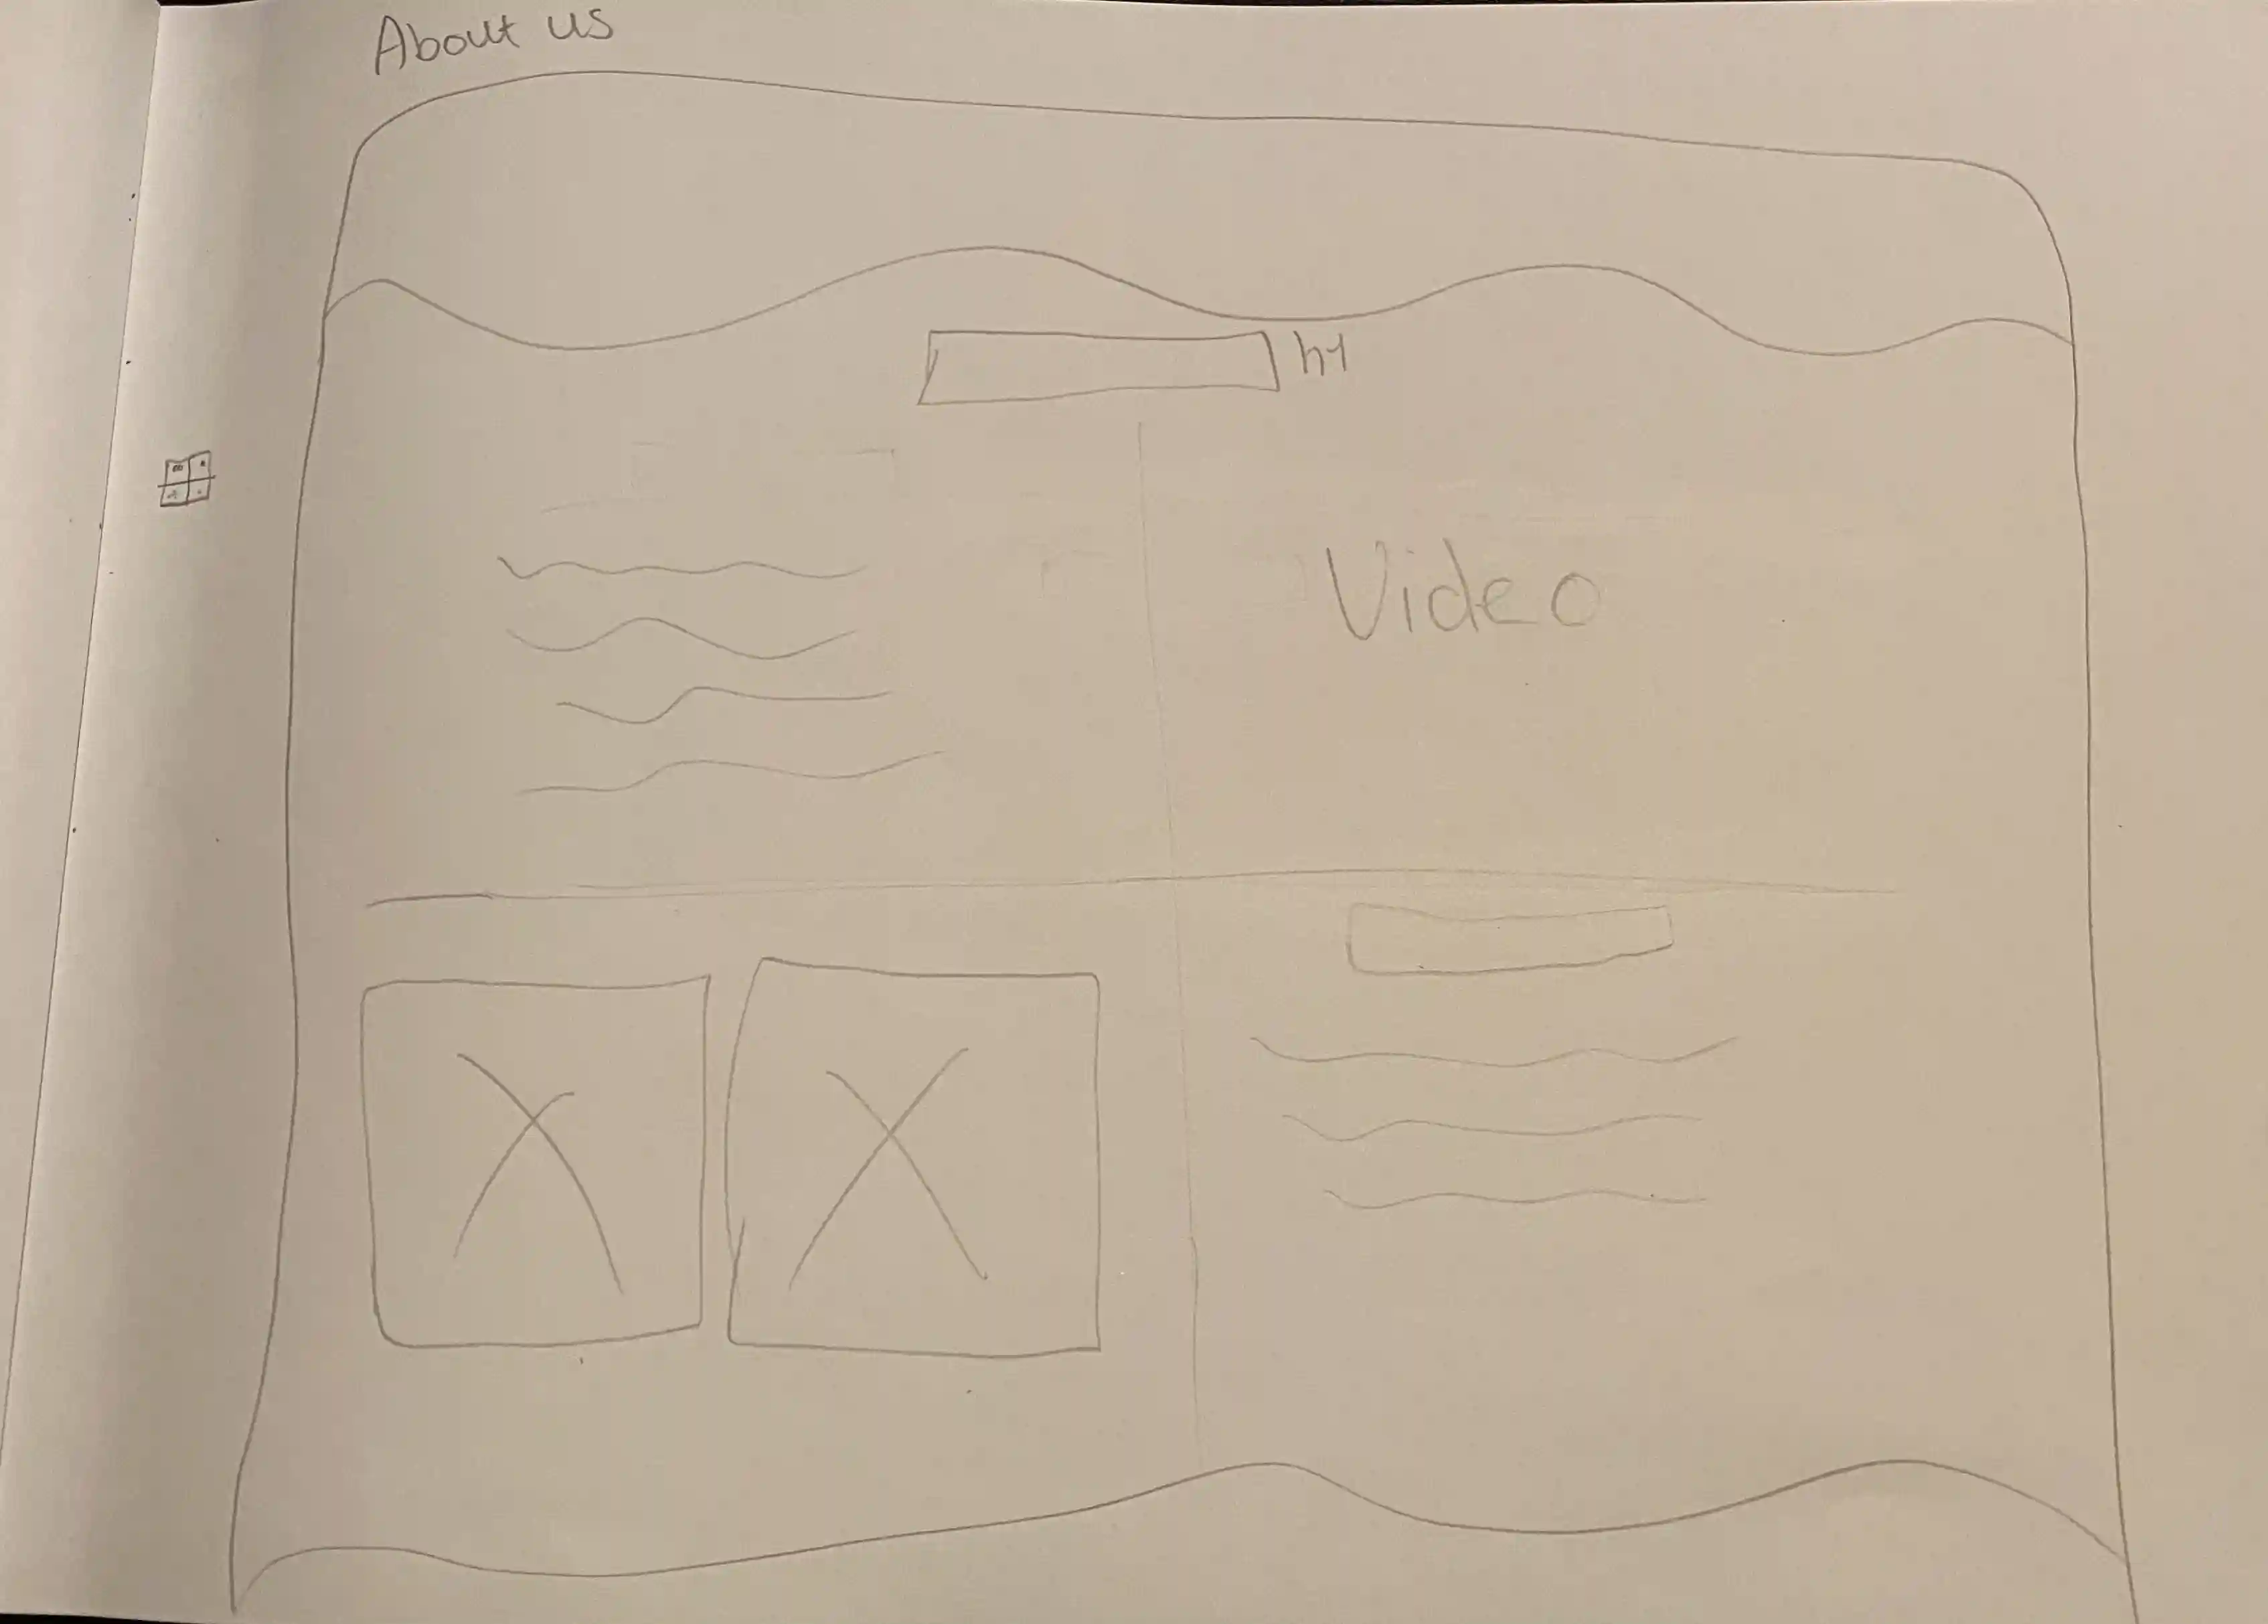 About us
h1
Video